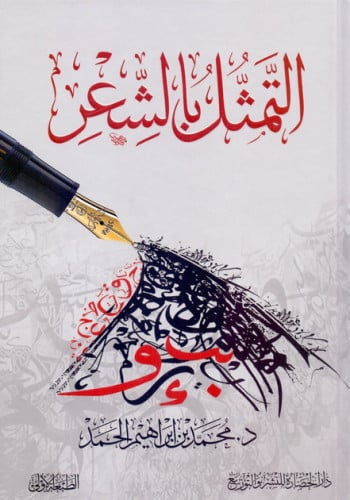 التَّمثُّل بالشِّعْرِ
د. محمد بن إبراهيم الحمد
دار الحضارة للنشر والتوزيع
الطبعة الأولى